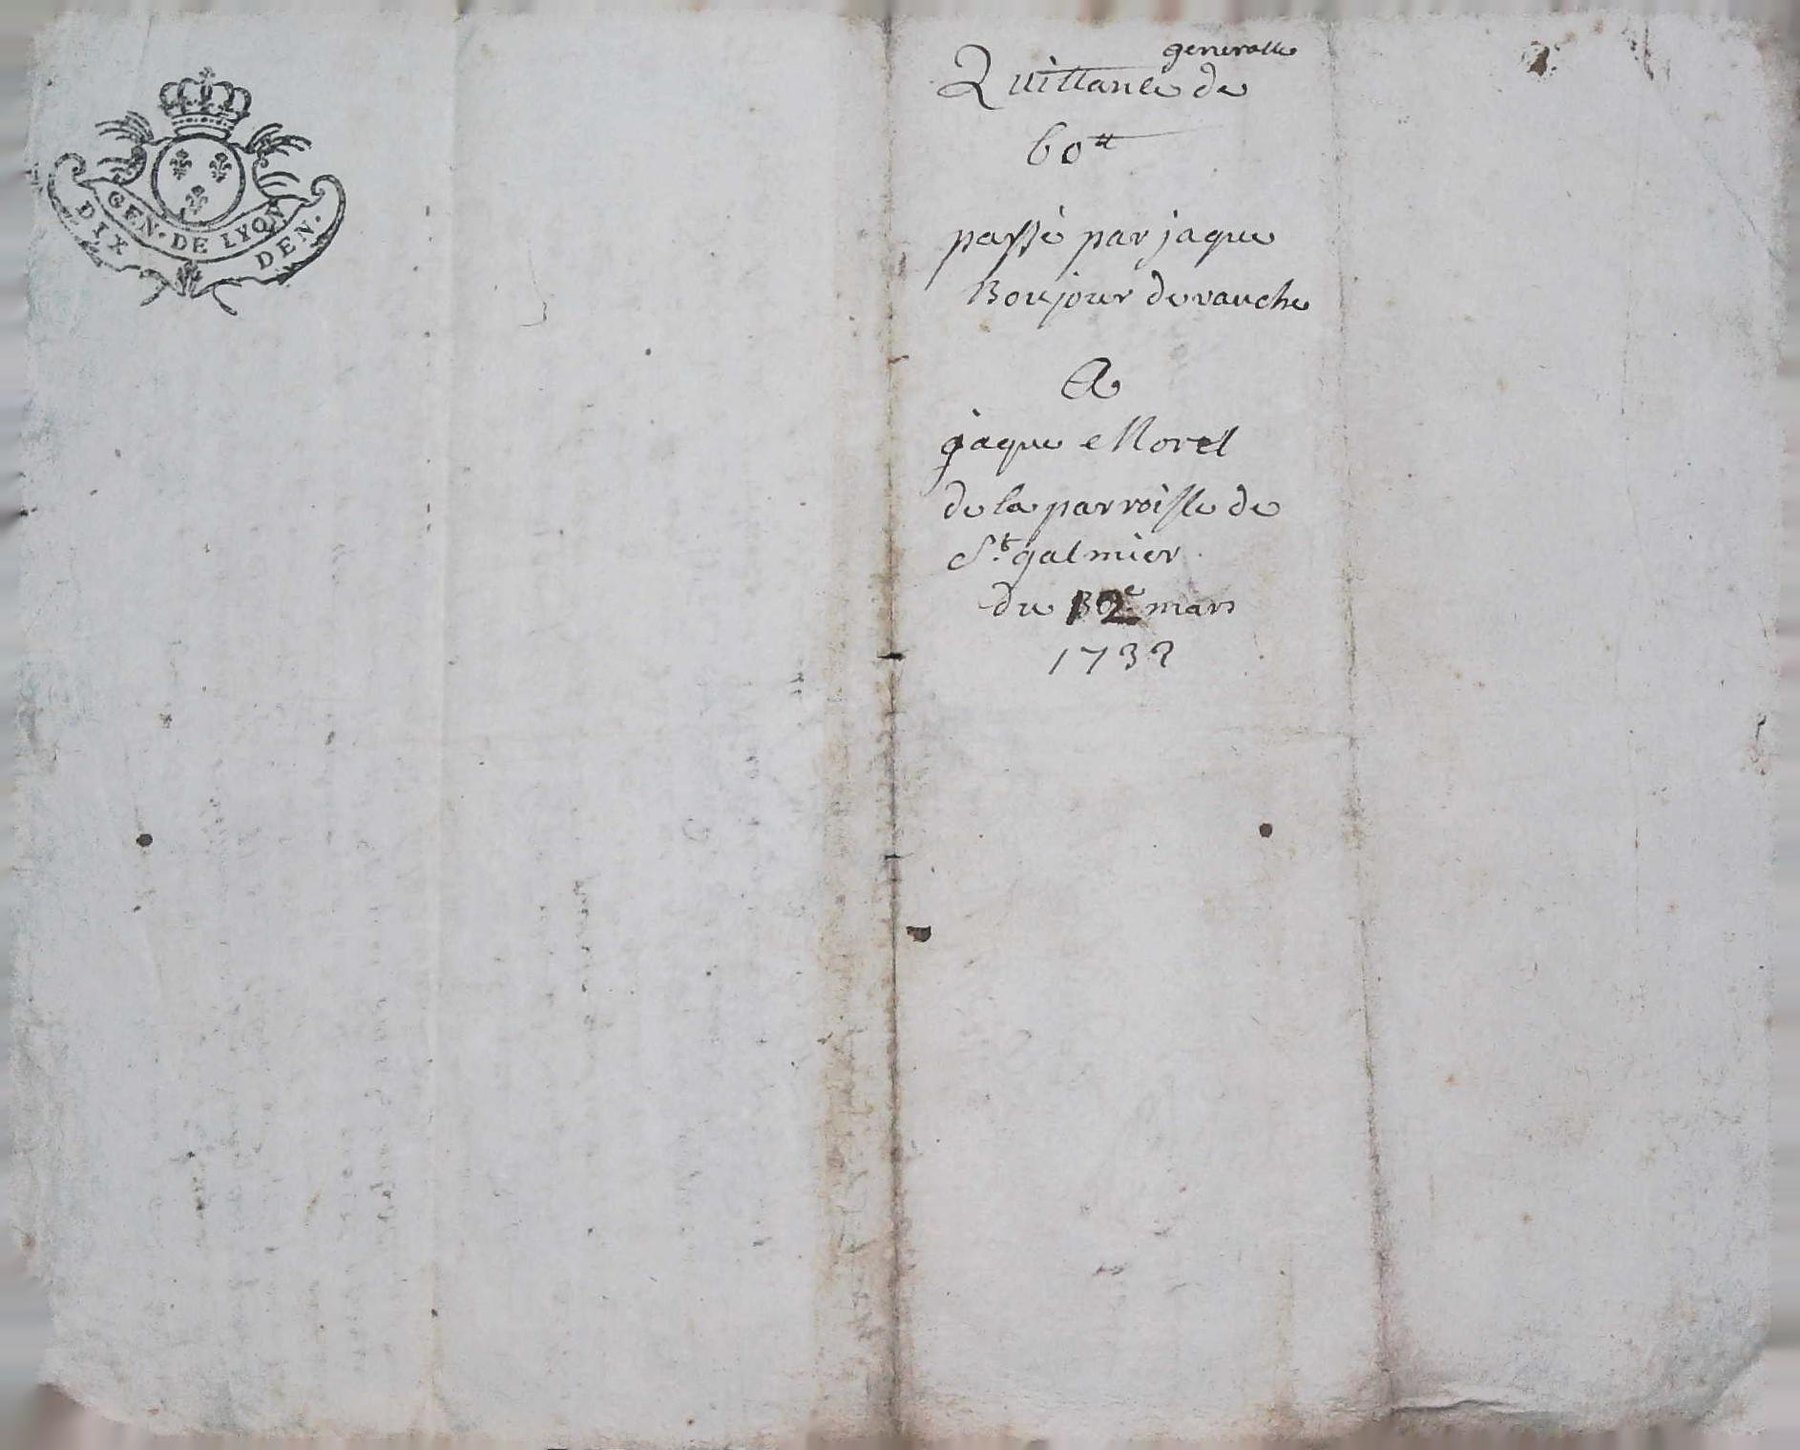 GEN. DE LYON
DIX DEN.
generalle
Quittance de
60ᵗᵗ
passé par jaque
Boujour devauche
A
jaque Morel
de la parroisse de
Sᵗ. galmier
du 12ᵉ mars
173